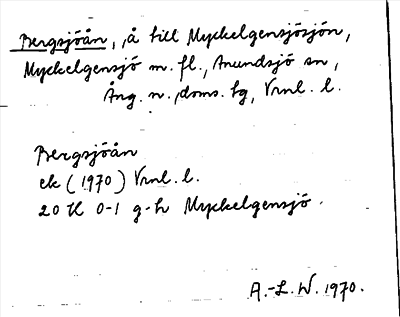 Bergsjöån, å till Myckelgensjösjön,
Myckelgensjö m. fl., Anundsjö sn,
Ång. n. doms. tg, Vrnl. l.
Bergsjöån
ek (1970) Vrnl. l.
20 H 0-1 g-h Myckelgensjö.
A.-L. W. 1970.